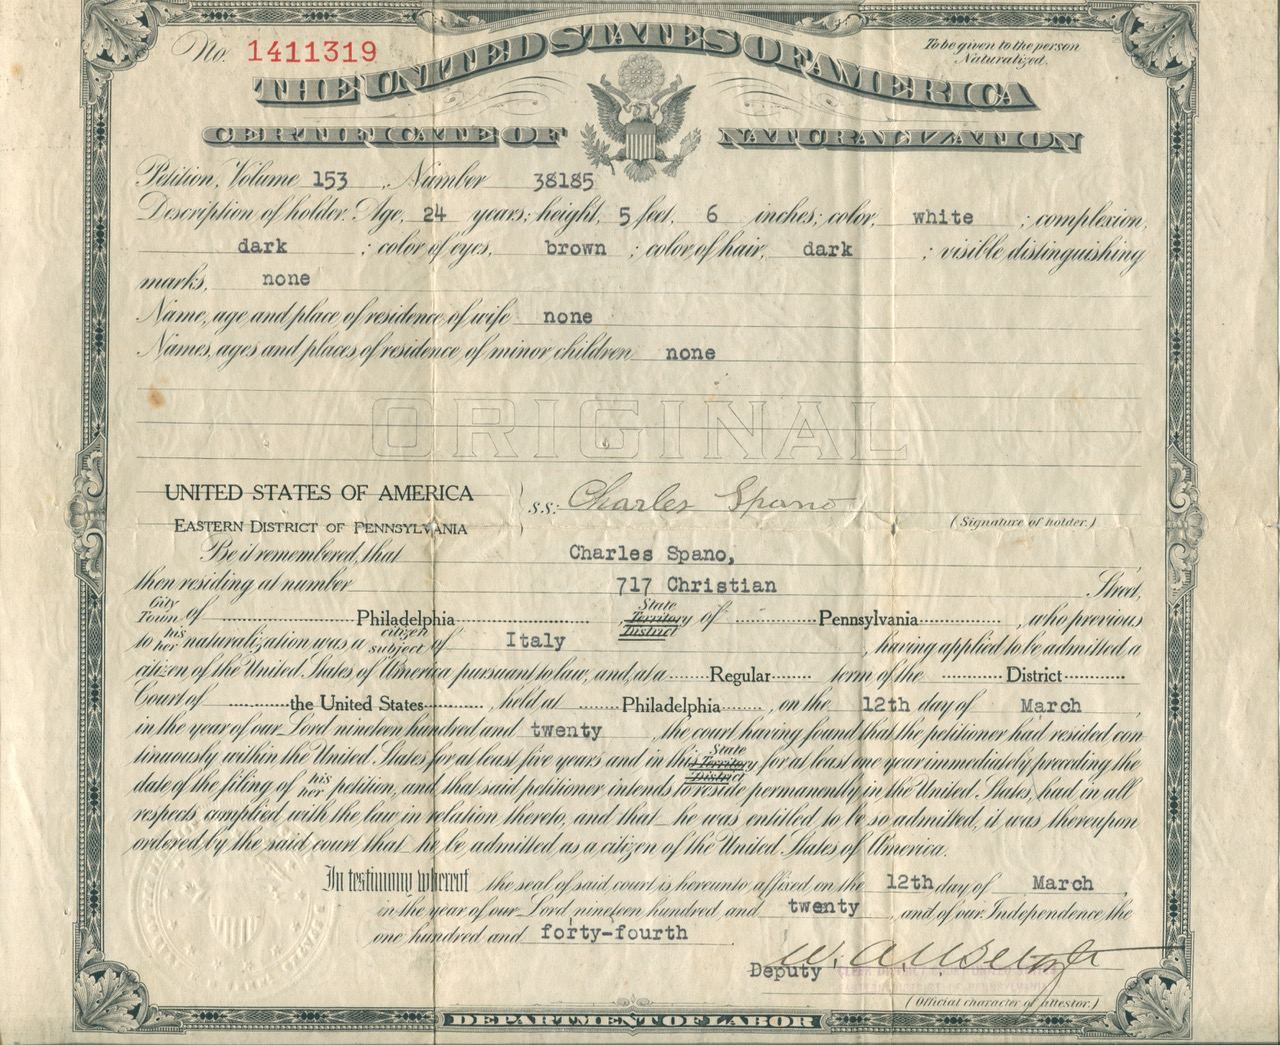 No. 1411319
To be given to the person
Naturalized.
THE UNITED STATES OF AMERICA
CERTIFICATE OF NATURALIZATION
Petition, Volume 153, Number 38185
Description of holder. Age, 24 years; height, 5 feet, 6 inches; color, white ; complexion,
dark ; color of eyes, brown ; color of hair, dark ; visible distinguishing
marks, none
Name, age and place of residence of wife none
Names, ages and places of residence of minor children none
ORIGINAL
UNITED STATES OF AMERICA
EASTERN DISTRICT OF PENNSYLVANIA
s.s: Charles Spano
(Signature of holder.)
Be it remembered, that Charles Spano,
then residing at number 717 Christian Street,
City
Town of Philadelphia, State
Territory
District of Pennsylvania, who previous
to his
her naturalization was a citizen
subject of Italy, having applied to be admitted a
citizen of the United States of America pursuant to law, and, at a Regular term of the District
Court of the United States, held at Philadelphia, on the 12th day of March,
in the year of our Lord nineteen hundred and twenty, the court having found that the petitioner had resided con
tinuously within the United States for at least five years and in this State
Territory
District for at least one year immediately preceding the
date of the filing of his
her petition, and that said petitioner intends to reside permanently in the United States, had in all
respects complied with the law in relation thereto, and that he was entitled to be so admitted, it was thereupon
ordered by the said court that he be admitted as a citizen of the United States of America.
In testimony whereof the seal of said court is hereunto affixed on the 12th day of March,
in the year of our Lord nineteen hundred and twenty, and of our Independence the
one hundred and forty-fourth
Deputy
(Official character of attestor.)
DEPARTMENT OF LABOR